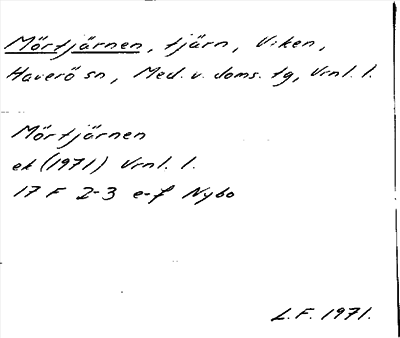 Mörtjärnen, tjärn, Viken,
Haverö sn, Med. v. doms. tg, Vrnl. l.
Mörtjärnen
ek (1971) Vrnl. l.
17 F 2-3 e-f Nybo
L.F. 1971.